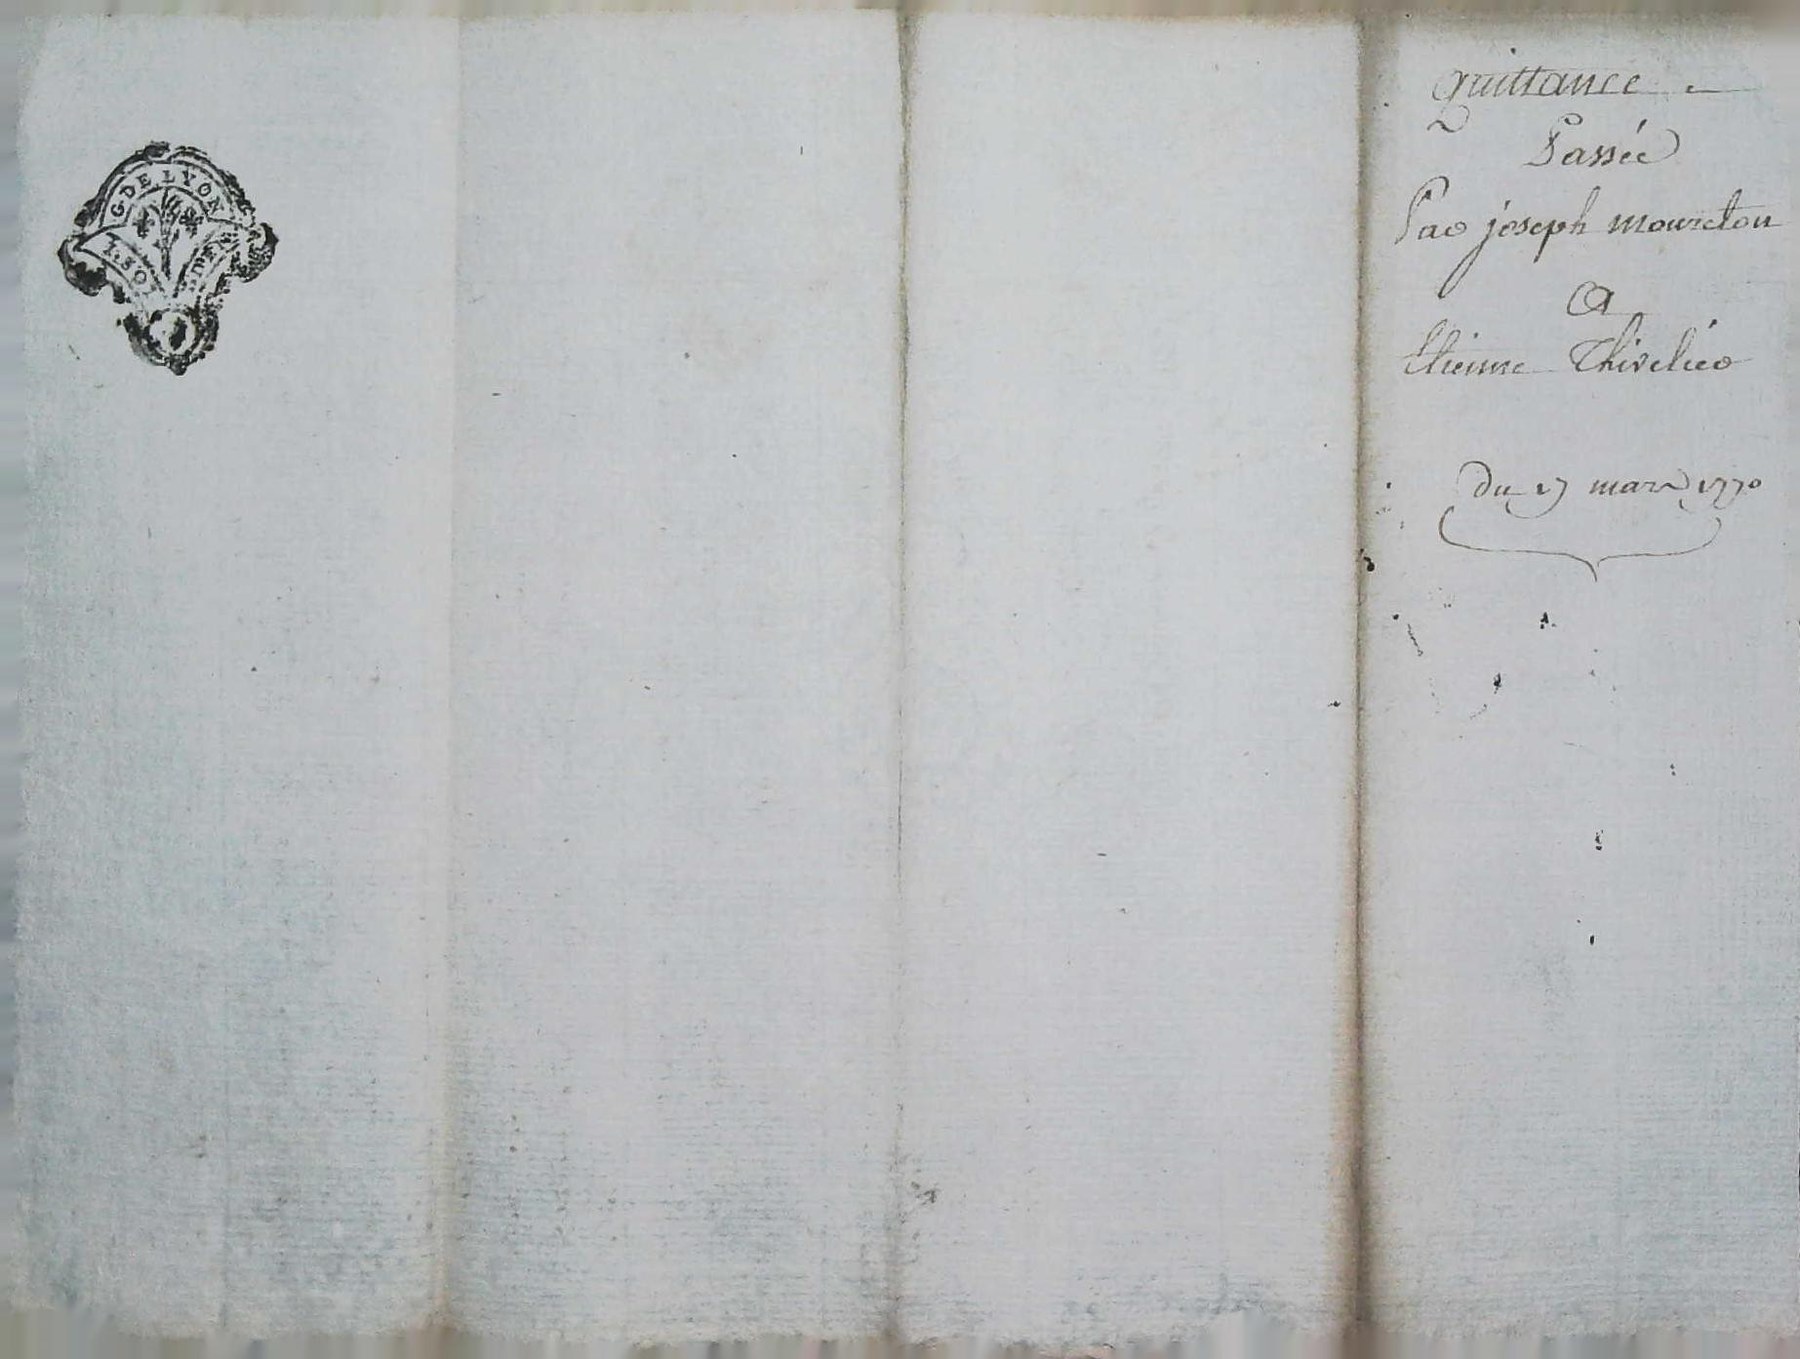 G. DE LYON
1. SOL
quittance
Passée
Par joseph moureton
A
Etienne Thivelier
Du 17 mars 1770